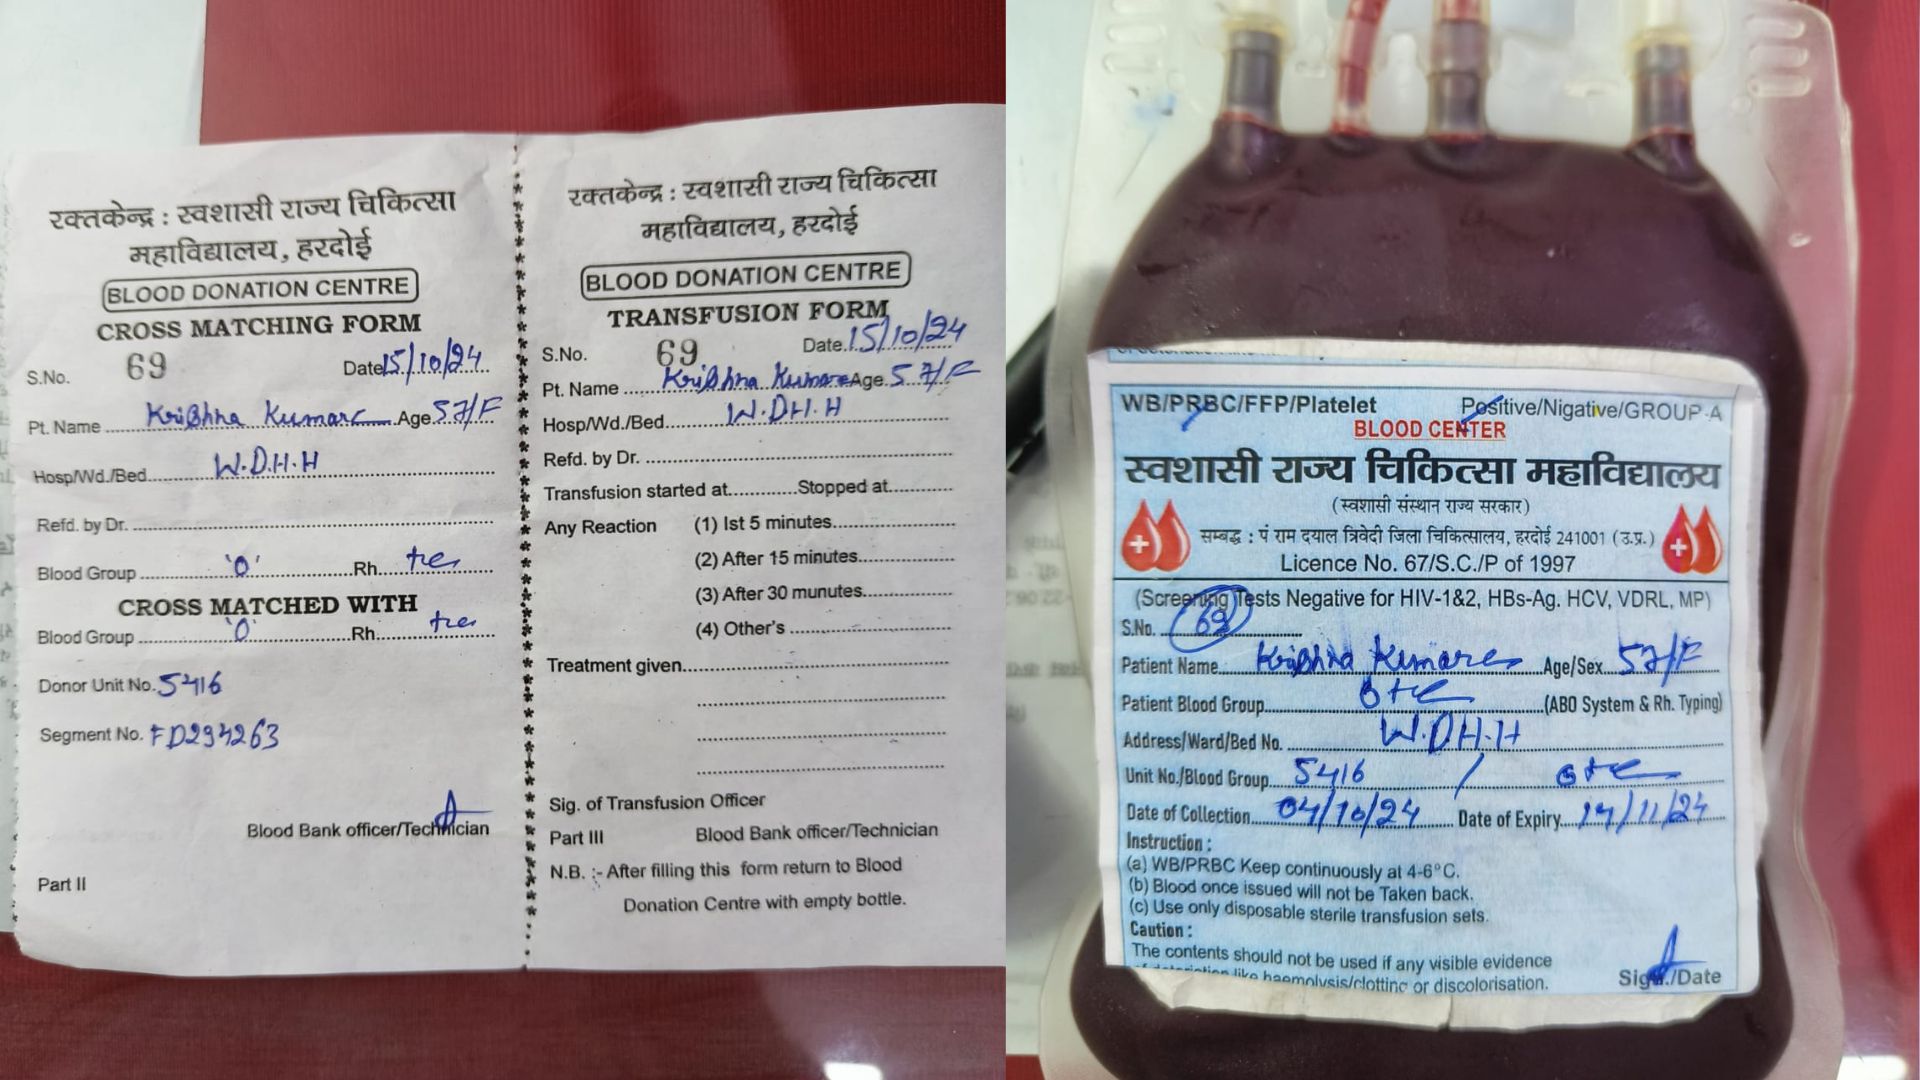 रक्तकेन्द्र : स्वशासी राज्य चिकित्सा
महाविद्यालय, हरदोई
BLOOD DONATION CENTRE
CROSS MATCHING FORM
S.No. 69 Date 15/10/24
Pt. Name Krishna Kumare Age 57/F
Hosp/Wd./Bed W.D.H.H
Refd. by Dr.
Blood Group 'O' Rh. +ve
CROSS MATCHED WITH
Blood Group 'O' Rh. +ve
Donor Unit No. 5416
Segment No. FD294263
Blood Bank officer/Technician
Part II
रक्तकेन्द्र : स्वशासी राज्य चिकित्सा
महाविद्यालय, हरदोई
BLOOD DONATION CENTRE
TRANSFUSION FORM
S.No. 69 Date. 15/10/24
Pt. Name Krishna Kumare Age. 57/F
Hosp/Wd./Bed W.DH.H
Refd. by Dr.
Transfusion started at............Stopped at............
Any Reaction (1) Ist 5 minutes
(2) After 15 minutes
(3) After 30 munutes
(4) Other's
Treatment given
Sig. of Transfusion Officer
Part III Blood Bank officer/Technician
N.B. :- After filling this form return to Blood
Donation Centre with empty bottle.
WB/PRBC/FFP/Platelet Positive/Nigative/GROUP-A
BLOOD CENTER
स्वशासी राज्य चिकित्सा महाविद्यालय
(स्वशासी संस्थान राज्य सरकार)
सम्बद्ध : पं राम दयाल त्रिवेदी जिला चिकित्सालय, हरदोई 241001 (उ.प्र.)
Licence No. 67/S.C./P of 1997
(Screening Tests Negative for HIV-1&2, HBs-Ag. HCV, VDRL, MP)
S.No. 69
Patient Name Krishna Kumare Age/Sex 57/F
Patient Blood Group O+ve (ABO System & Rh. Typing)
Address/Ward/Bed No. W.DH.H
Unit No./Blood Group 5416 / O+ve
Date of Collection 04/10/24 Date of Expiry 14/11/24
Instruction :
(a) WB/PRBC Keep continuously at 4-6°C.
(b) Blood once issued will not be Taken back.
(c) Use only disposable sterile transfusion sets.
Caution :
The contents should not be used if any visible evidence
like haemolysis/clotting or discolorisation.
Sign./Date